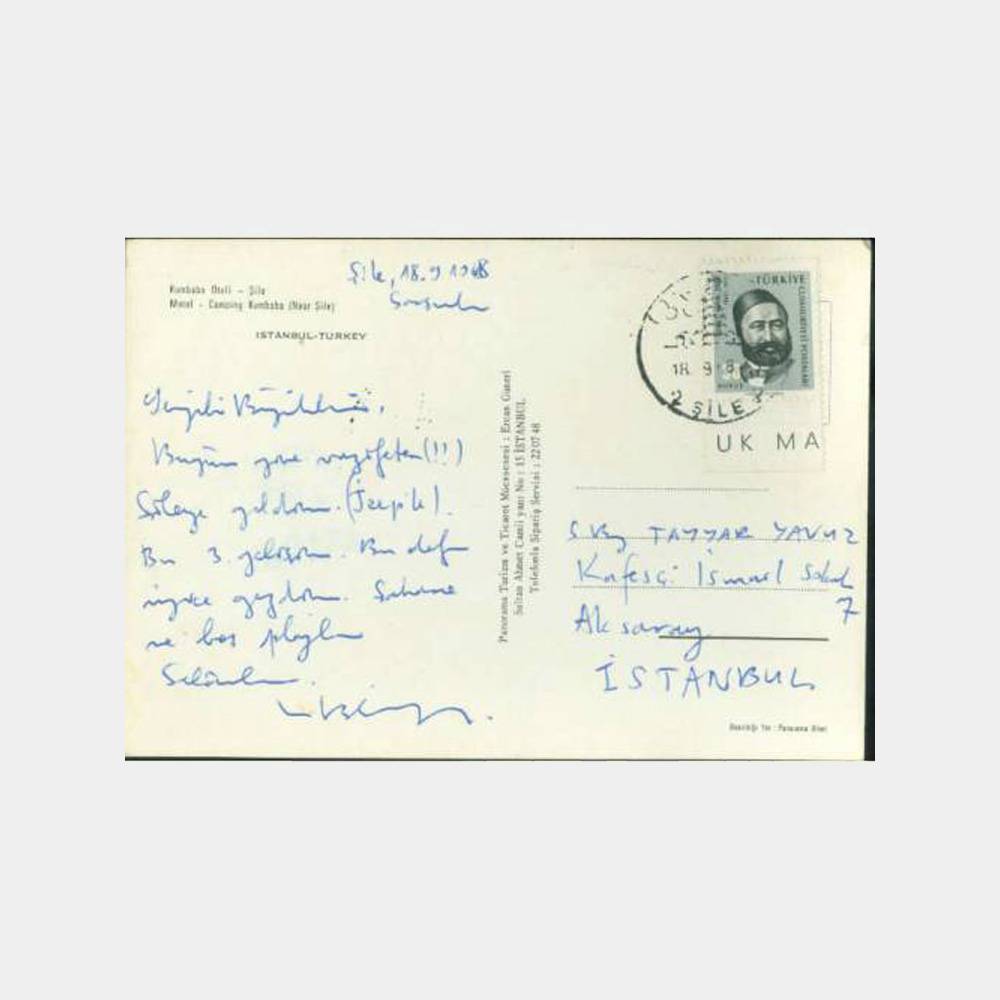 Kumbaba Oteli - Şile
Motel - Camping Kumbaba (Near Şile)
ISTANBUL-TURKEY
Şile, 18.9.1968
Bugün yine (!!!)
Şileye geldim. (Jeeple).
Bu 3. gelişim. Bu defa
iyice gezdim. Şahane
ve boş plajlar
Selâmlar.
Panorama Turizm ve Ticaret Müessesesi : Ercan Guneri
Sultan Ahmet Camii yanı No : 15 İSTANBUL
Telefonla Sipariş Servisi : 22 07 48
TÜRKİYE
CUMHURİYETİ POSTALARI
18 9
ŞİLE
UK MA
S. Bay TAYYAR YAVUZ
Kafesçi İsmail Sokak
7
Aksaray
İSTANBUL
Basıldığı Yer : Panorama Ofset